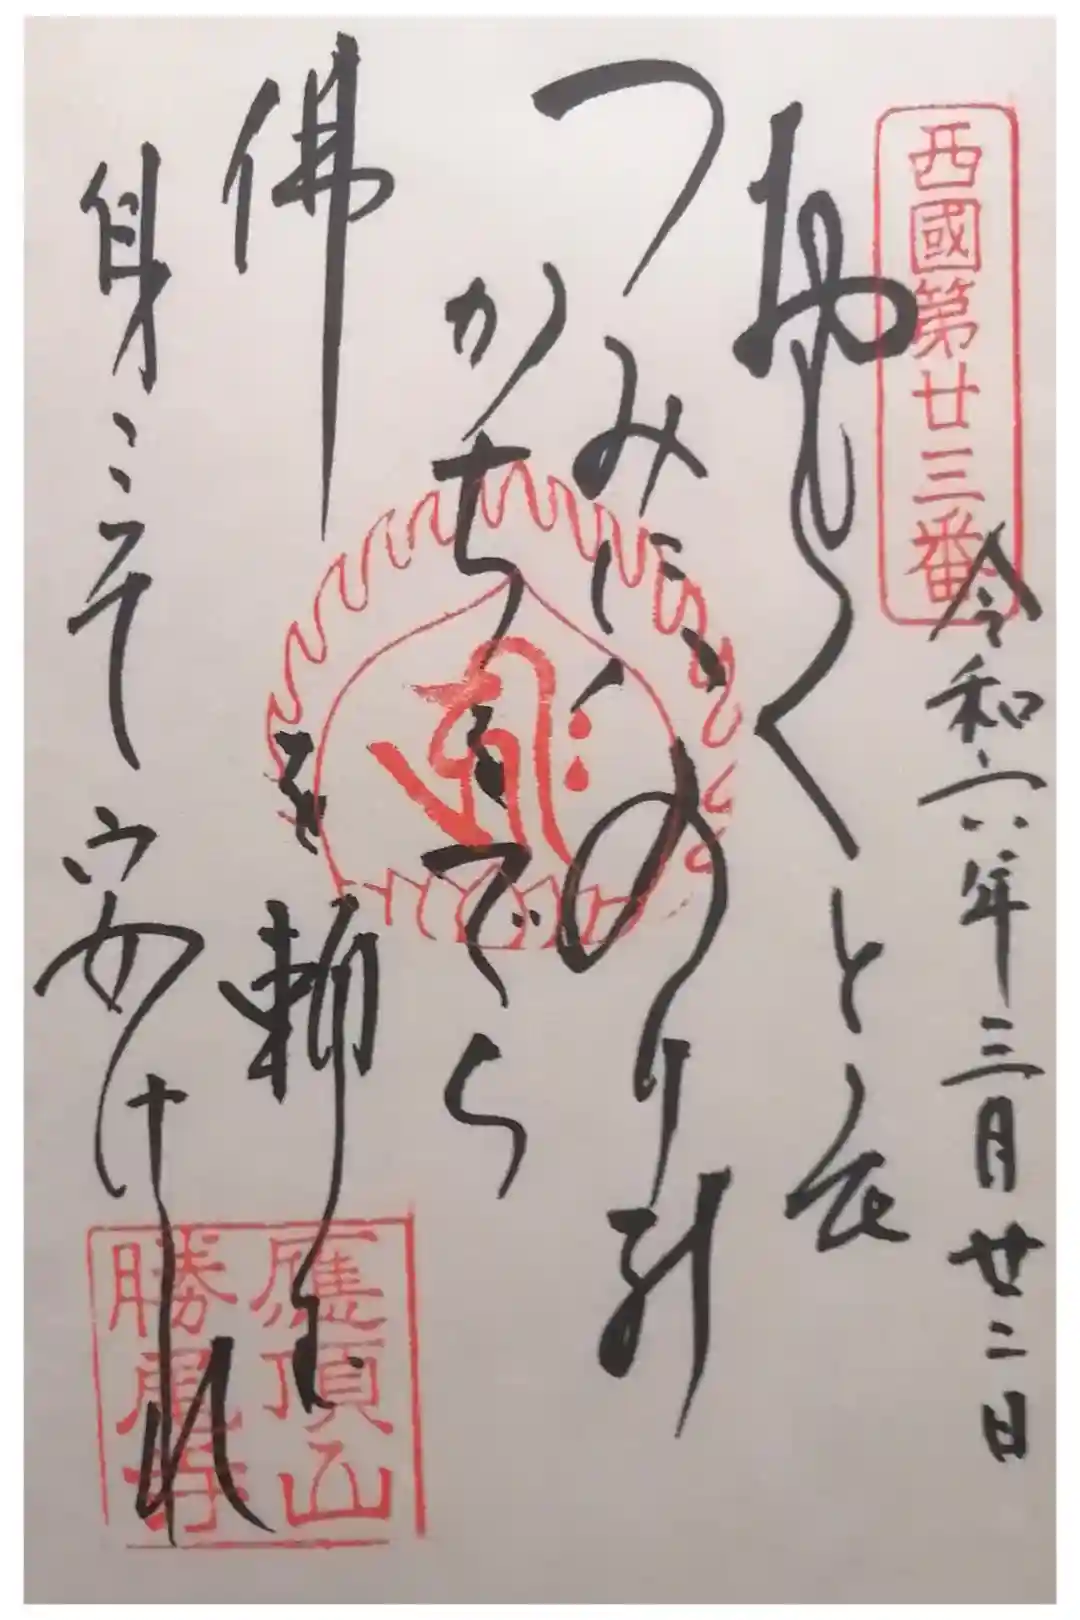 西國第廿三番
令和六年三月廿二日
おもくとも
つみにはのりの
かちをてら
佛を頼む
身こそ安けれ
應頂山
勝尾寺